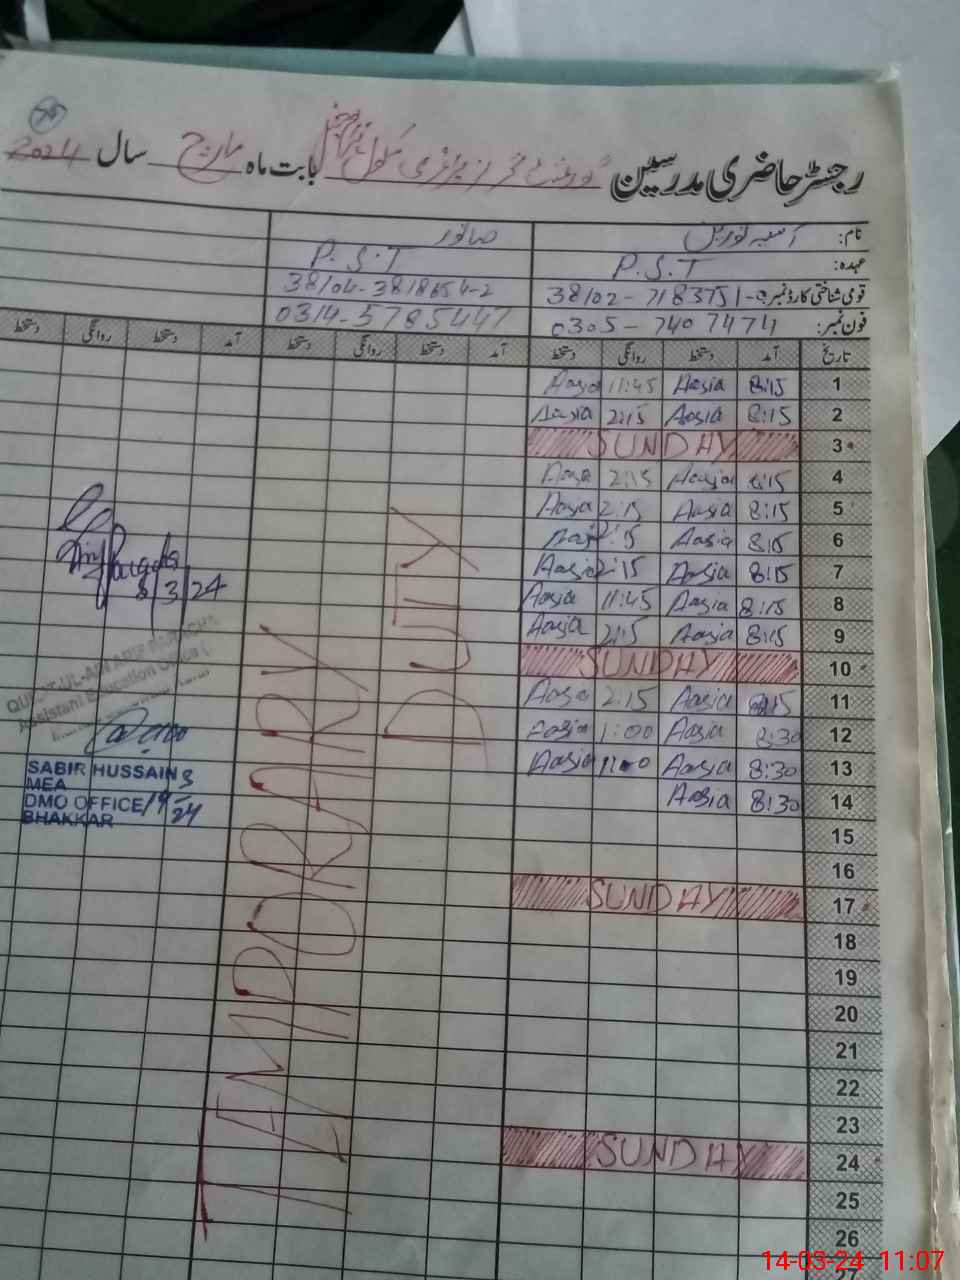 رجسٹر حاضری مدرسین گورنمنٹ گرلز پرائمری سکول بابت ماہ مارچ سال 2024
نام: آسیہ نورین
عہدہ: P.S.T P.S.T
قومی شناختی کارڈ نمبر: 38102-7183751-0 38104-3818654-2
فون نمبر: 0305-7407474 0314-5785447
تاریخ آمد دستخط روانگی دستخط آمد دستخط روانگی دستخط آمد دستخط روانگی دستخط
1 8:15 Aasia 11:45 Aasia
2 8:15 Aasia 2:15 Aasia
3 SUNDAY
4 8:15 Aasia 2:15 Aasia
5 8:15 Aasia 2:15 Aasia
6 8:15 Aasia 2:15 Aasia
7 8:15 Aasia 2:15 Aasia
8 8:15 Aasia 11:45 Aasia
9 8:15 Aasia 2:15 Aasia
10 SUNDAY
11 8:15 Aasia 2:15 Aasia
12 8:30 Aasia 1:00 Aasia
13 8:30 Aasia 1:00 Aasia
14 8:30 Aasia
15
16
17 SUNDAY
18
19
20
21
22
23
24 SUNDAY
25
26
27
TEMPORARY
DUTY
8/3/24
Assistant Education Officer
SABIR HUSSAIN
MEA
DMO OFFICE
BHAKKAR
14-3-24
14-03-24 11:07